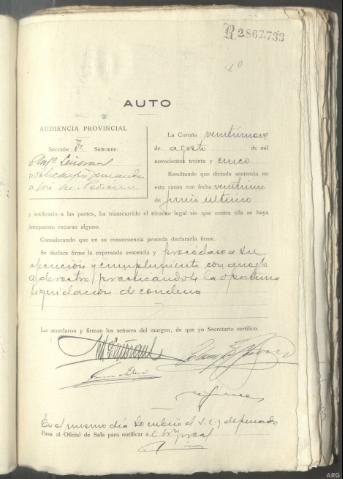 R 2867.733
2º
AUTO
AUDIENCIA PROVINCIAL
Sección 3ª Señores:
La Coruña veintinueve
de agosto de mil
novecientos treinta y cinco
Resultando que dictada sentencia en
esta causa con fecha veintiuno
de junio último
y notificada a las partes, ha transcurrido el término legal sin que contra ella se haya
interpuesto recurso alguno.
Considerando que en su consecuencia procede declararla firme.
Se declara firme la expresada sentencia y procédase a su
ejecución y cumplimiento con arreglo
a derecho, practicándose la oportuna
liquidación de condena
Lo acordaron y firman los señores del margen, de que yo Secretario certifico.
En el mismo día
Pasa al Oficial de Sala para notificar al Sr. Fiscal
ARG